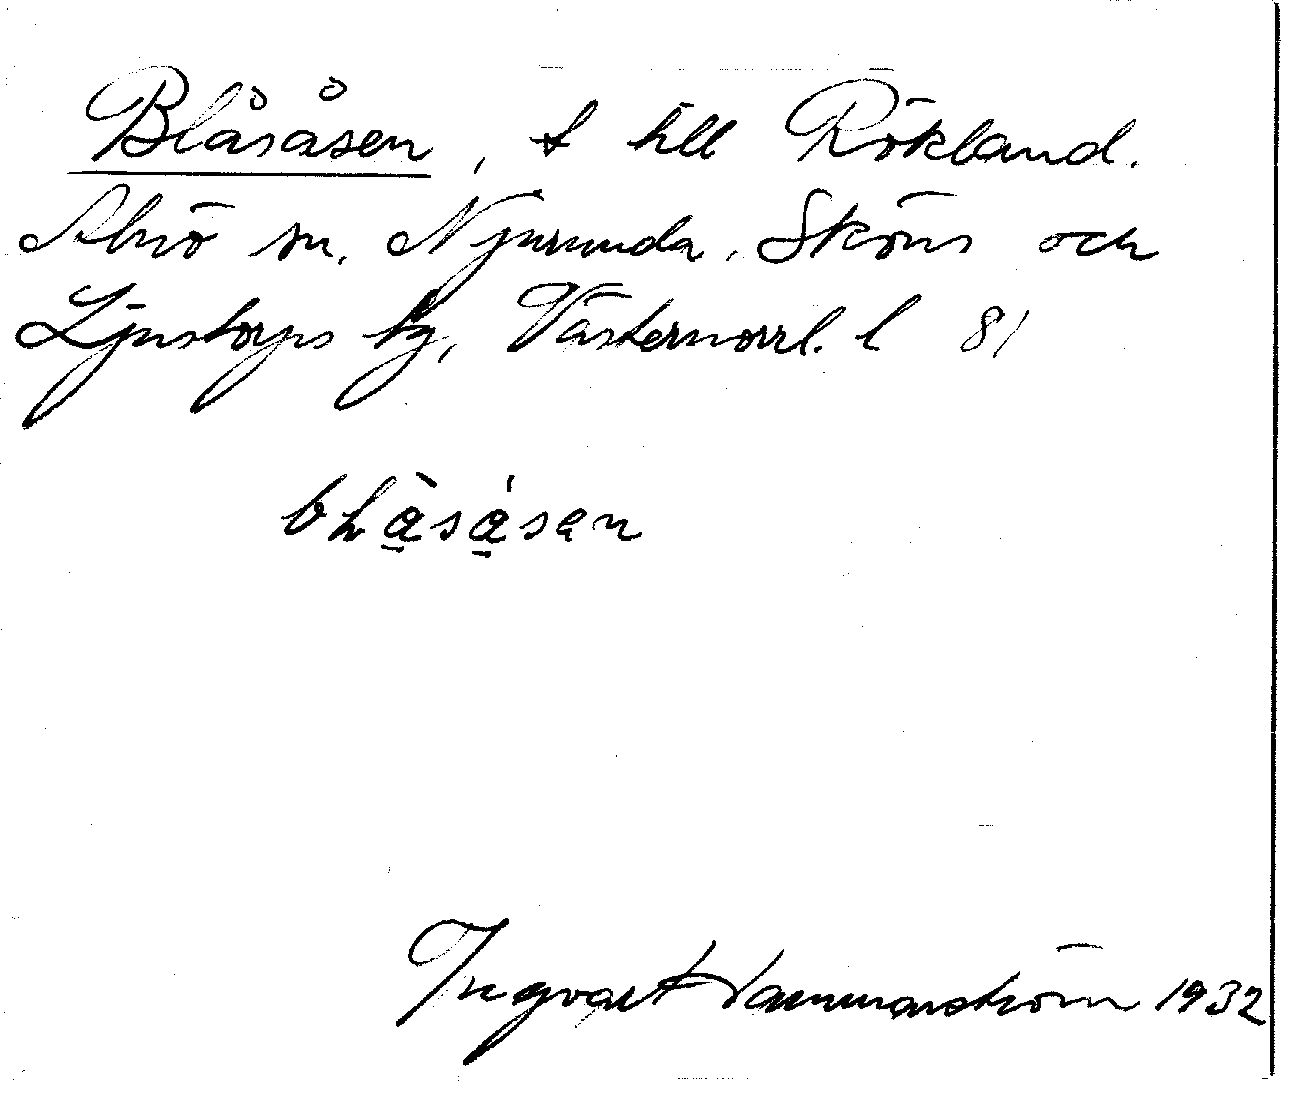 Blåsåsen, t till Rökland.
Alnö sn. Njurunda, Sköns och
Ljustorps tg, Västernorrl. l 81
bḷå̀sǻsen
Ingvar Hammarström 1932